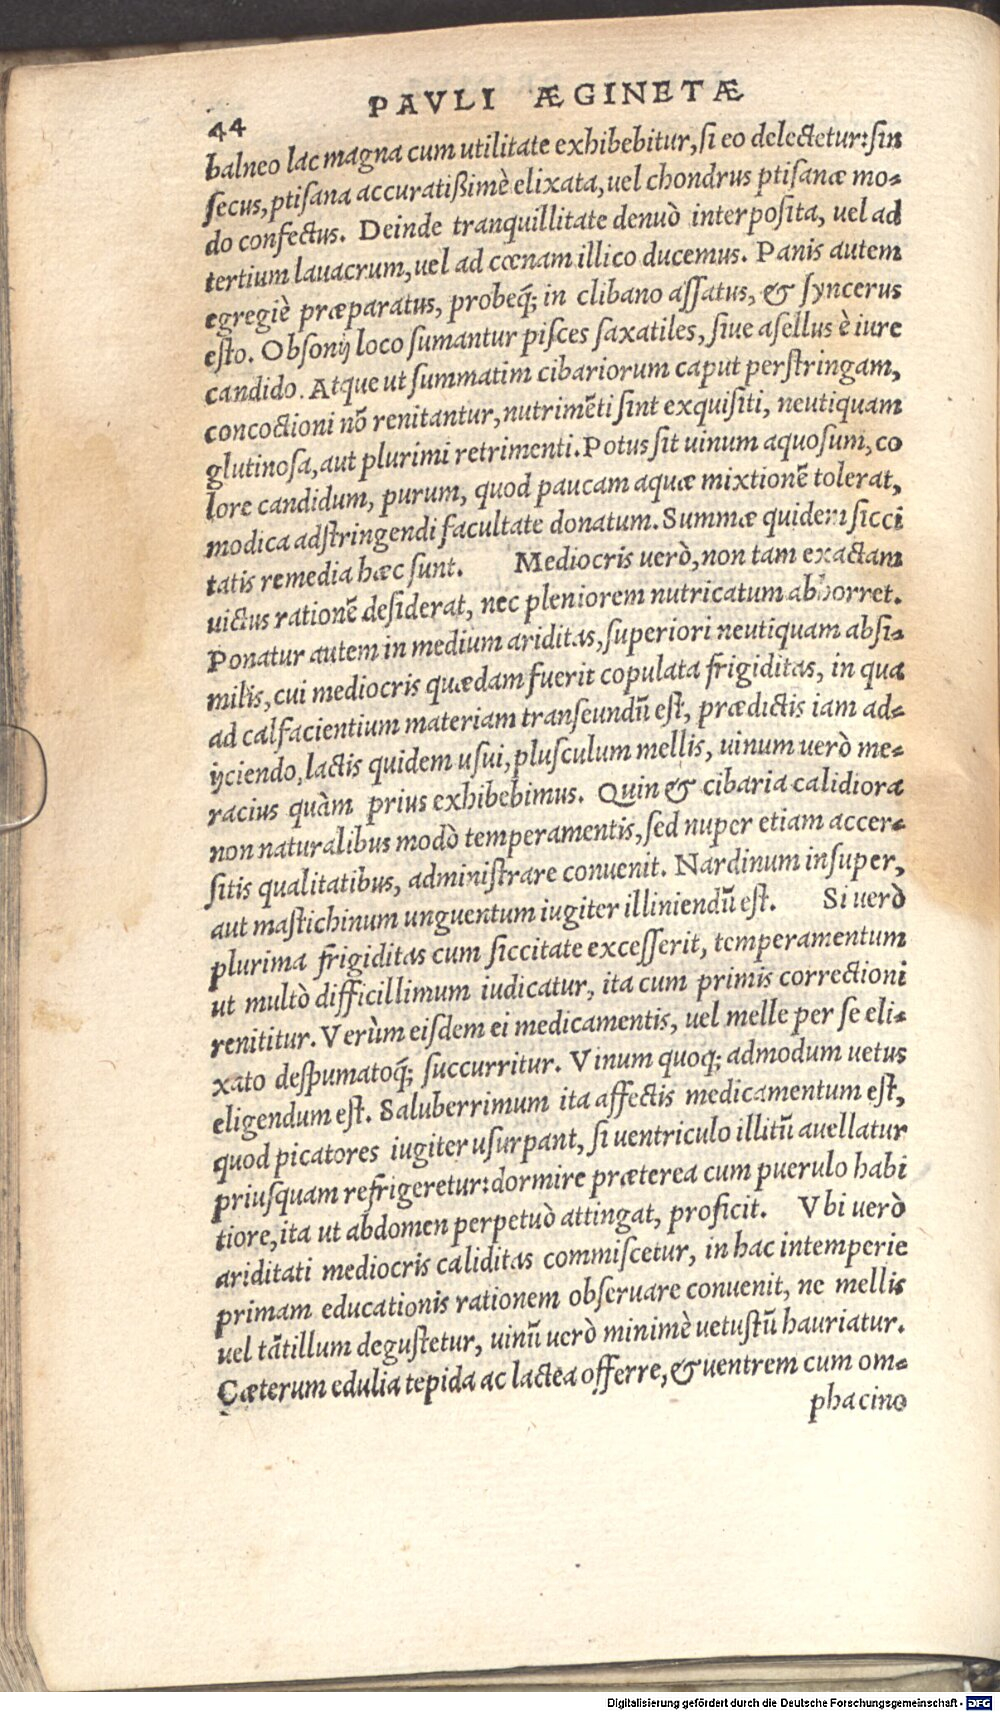 44
PAVLI ÆGINETÆ
balneo lac magna cum utilitate exhibebitur, ſi eo delectetur: ſin
ſecus, ptiſana accuratißimè elixata, uel chondrus ptiſanæ mo-
do confectus. Deinde tranquillitate denuò interpoſita, uel ad
tertium lauacrum, uel ad cœnam illico ducemus. Panis autem
egregiè præparatus, probeq́; in clibano aſſatus, & ſyncerus
eſto. Obſonij loco ſumantur piſces ſaxatiles, ſiue aſellus è iure
candido. Atque ut ſummatim cibariorum caput perſtringam,
concoctioni nõ renitantur, nutrimẽti ſint exquiſiti, neutiquam
glutinoſa, aut plurimi retrimenti. Potus ſit uinum aquoſum, co
lore candidum, purum, quod paucam aquæ mixtionẽ tolerat,
modica adſtringendi facultate donatum. Summæ quidem ſicci
tatis remedia hæc ſunt. Mediocris uerò, non tam exactam
uictus rationẽ deſiderat, nec pleniorem nutricatum abhorret.
Ponatur autem in medium ariditas, ſuperiori neutiquam abſi-
milis, cui mediocris quædam fuerit copulata frigiditas, in qua
ad calfacientium materiam tranſeundũ eſt, prædictis iam ad-
ijciendo, lactis quidem uſui, pluſculum mellis, uinum uerò me-
racius quàm prius exhibebimus. Quin & cibaria calidiora
non naturalibus modò temperamentis, ſed nuper etiam accer-
ſitis qualitatibus, adminiſtrare conuenit. Nardinum inſuper,
aut maſtichinum unguentum iugiter illiniendũ eſt. Si uerò
plurima frigiditas cum ſiccitate exceſſerit, temperamentum
ut multò difficillimum iudicatur, ita cum primis correctioni
renititur. Verùm eiſdem ei medicamentis, uel melle per ſe eli-
xato deſpumatoq́; ſuccurritur. Vinum quoq; admodum uetus
eligendum eſt. Saluberrimum ita affectis medicamentum eſt,
quod picatores iugiter uſurpant, ſi uentriculo illitũ auellatur
priuſquam refrigeretur: dormire præterea cum puerulo habi
tiore, ita ut abdomen perpetuò attingat, proficit. Vbi uerò
ariditati mediocris caliditas commiſcetur, in hac intemperie
primam educationis rationem obſeruare conuenit, ne mellis
uel tãtillum deguſtetur, uinũ uerò minimè uetuſtũ hauriatur.
Cæterum edulia tepida ac lactea offerre, & uentrem cum om-
phacino
Digitalisierung gefördert durch die Deutsche Forschungsgemeinschaft - DFG